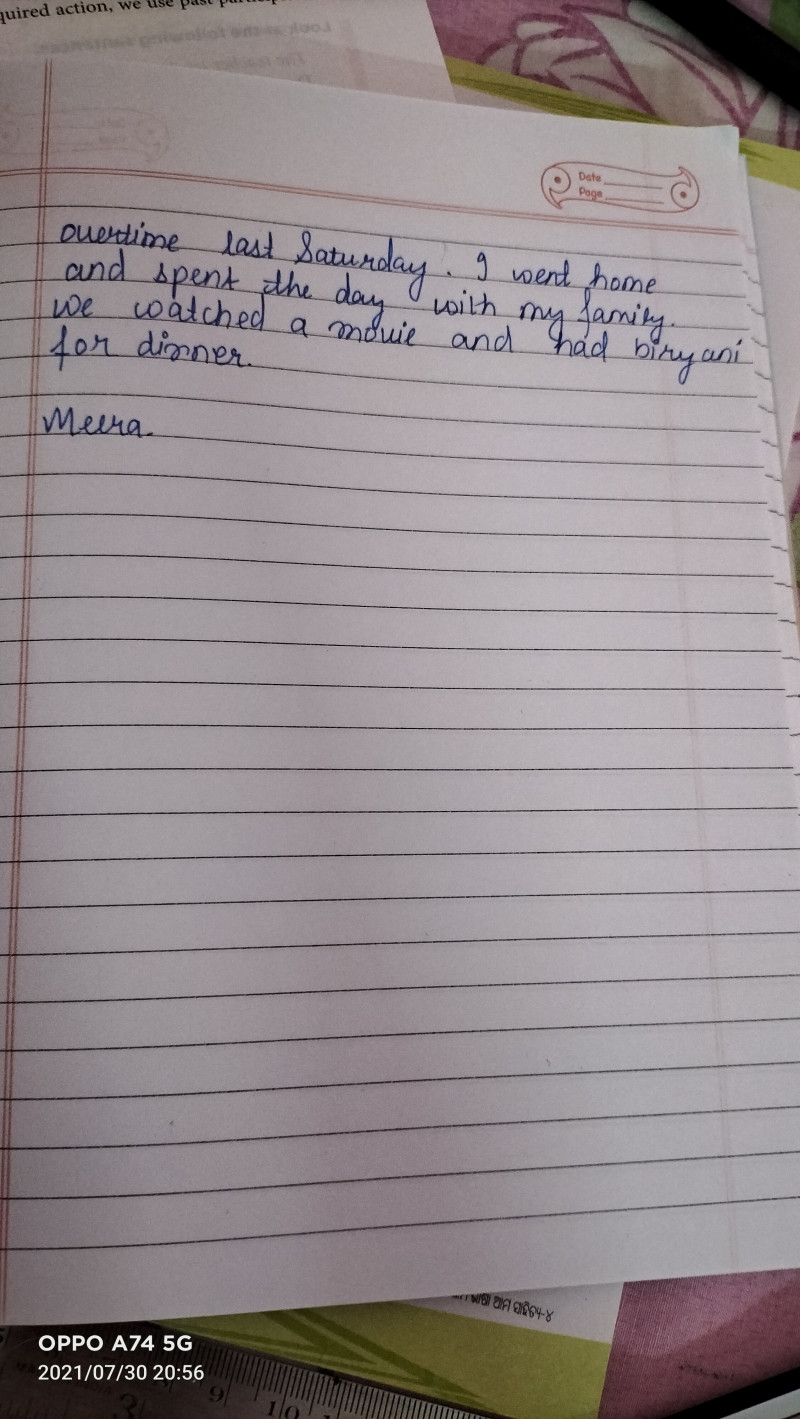 quired action, we use past
Look at the following sentences
Date
Page
overtime last Saturday. I went home
and spent the day with my family.
We watched a movie and had biryani
for dinner.
Meera.
OPPO A74 5G
2021/07/30 20:56
9
10
3